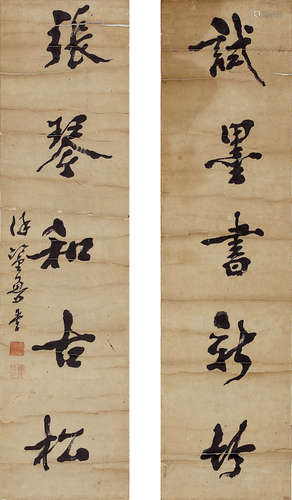 試墨書新竹
張琴和古松